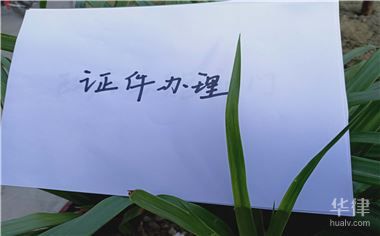 证件办理
华律
hualv.com